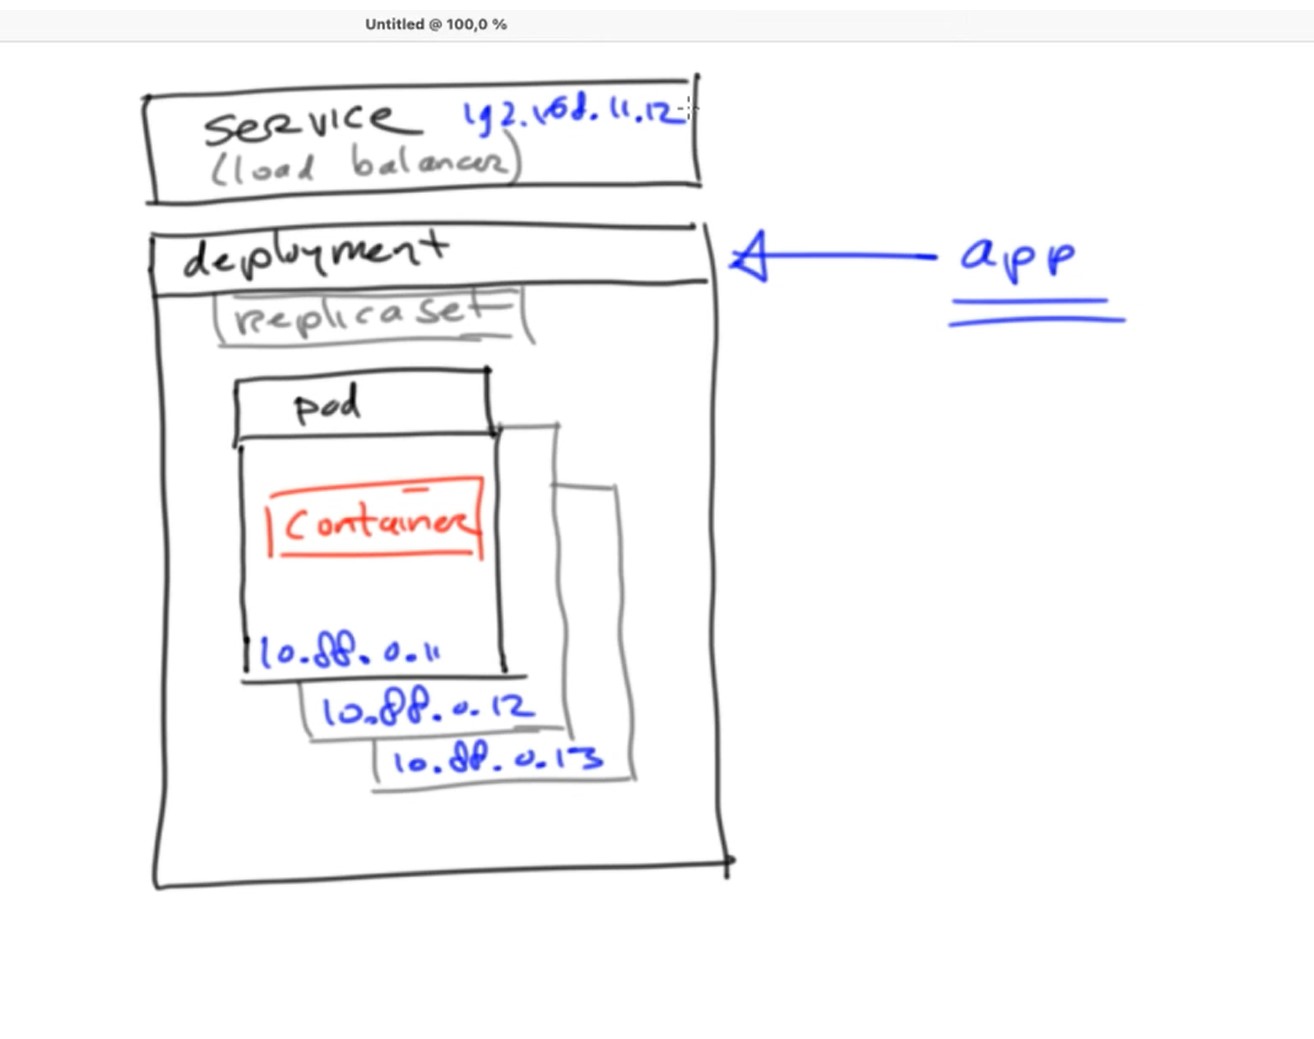 Untitled @ 100,0 %
service 192.168.11.12
(load balancer)
deployment
app
replicaset
pod
Container
10.88.0.11
10.88.0.12
10.88.0.13